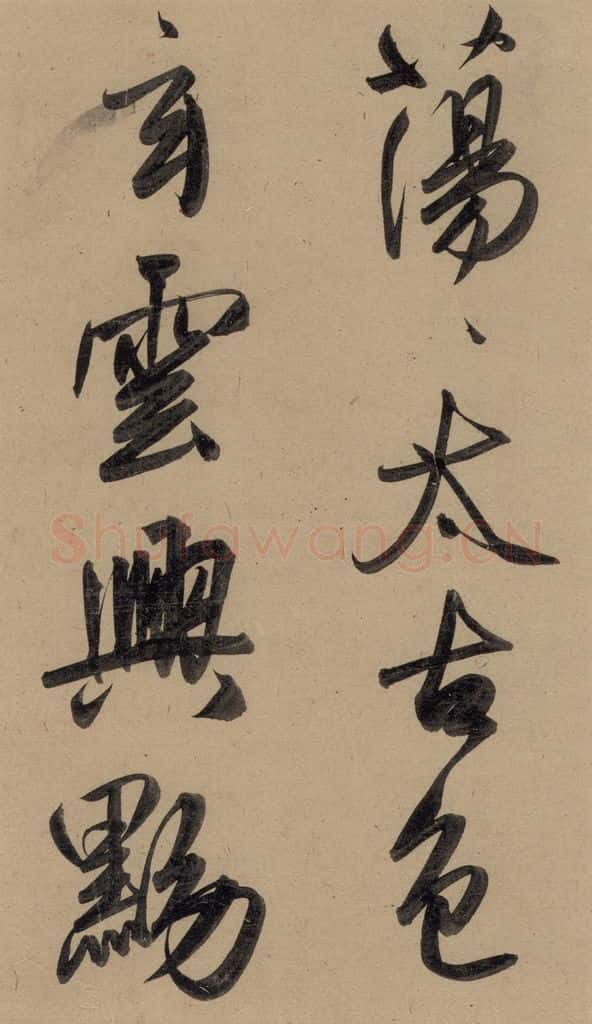 蕩、太古色
玄雲興黝
Shufawang.CN